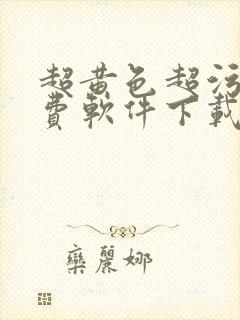 超黄色超污
费軟件下載
欒麗娜